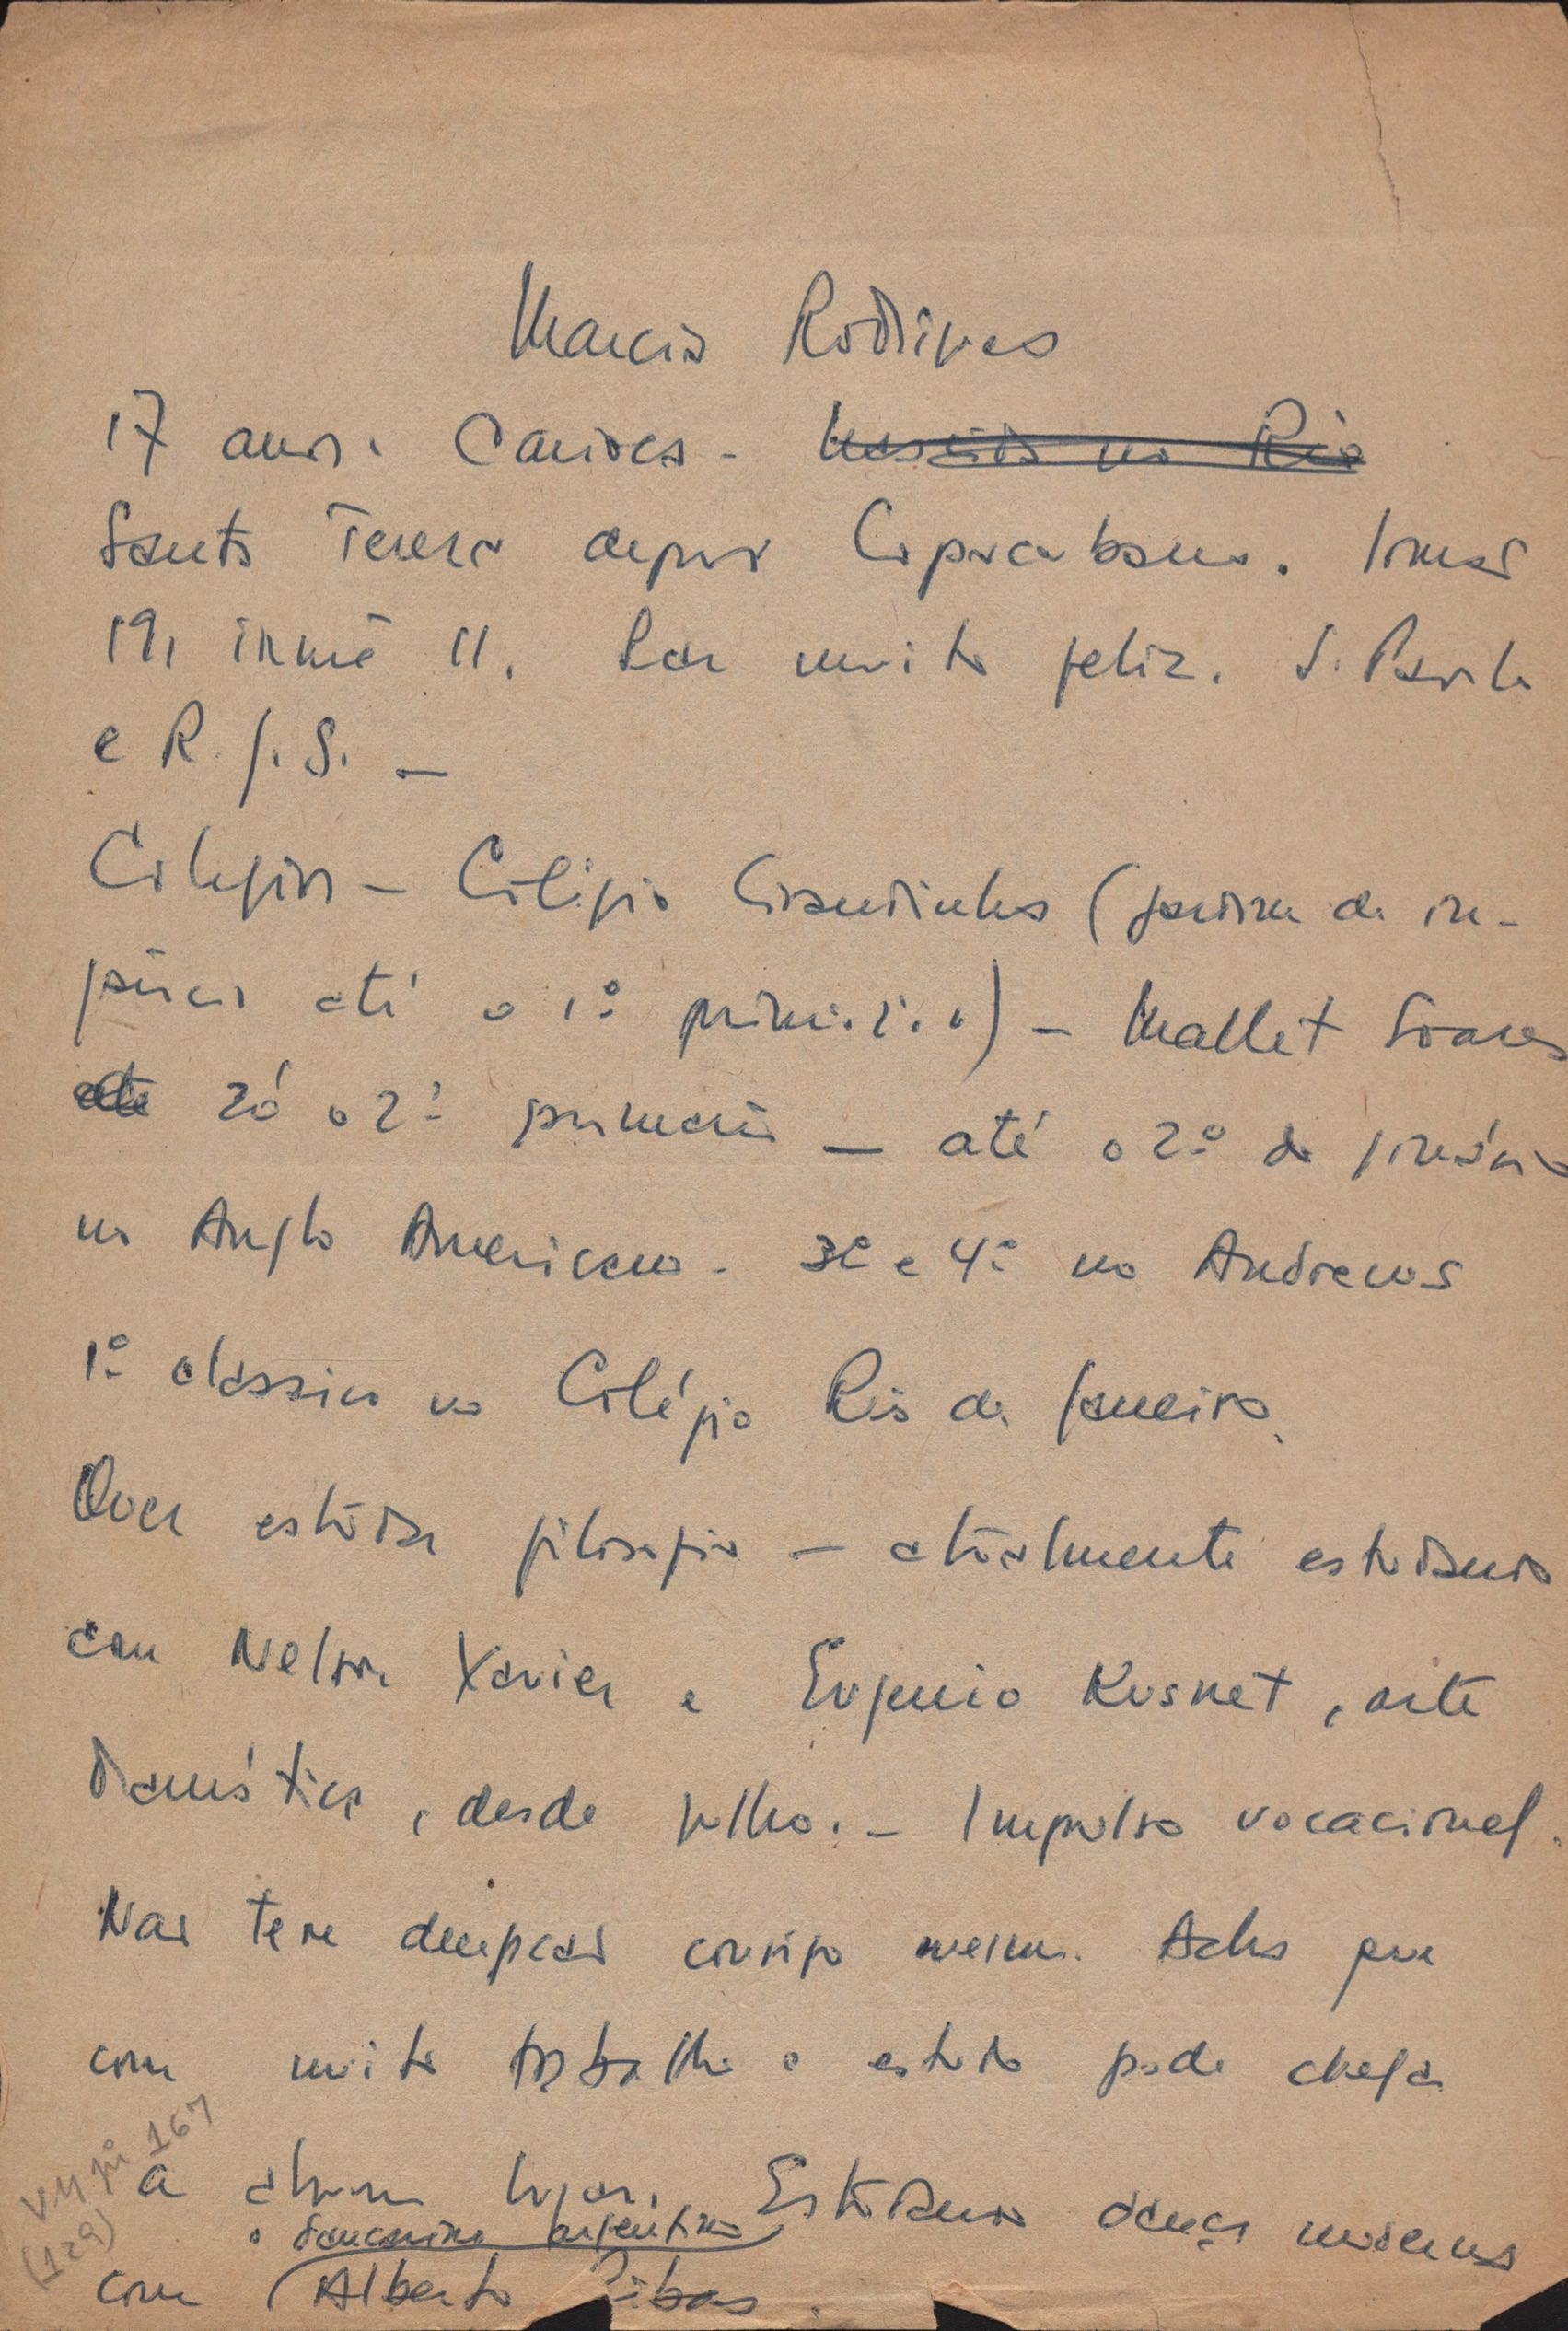 Marcia Rodrigues
17 anos. Carioca - Nascida no Rio
Santa Teresa depois Copacabana. Irmão
19, irmã 11. Lar muito feliz. S. Paulo
e R. G. S. —
Colégios — Colégio (jardim de in-
fância até o 1º primário) — Mallet Soares
até só o 2º primário — até o 2º do ginásio
no Anglo Americano. 3º e 4º no Andrews
1º classico no Colégio Rio de Janeiro.
Quer estudar filosofia — atualmente estudando
com Nelson Xavier e Eugenio Kusnet, arte
dramática, desde julho. — Impulso vocacional.
Nao teve decepçao consigo mesma. Acha que
com muito trabalho e estudo pode chegar
a algum lugar. Estudando dança moderna
o dansarino argentino
com (Alberto Ribas.
VM pi 167
(129)